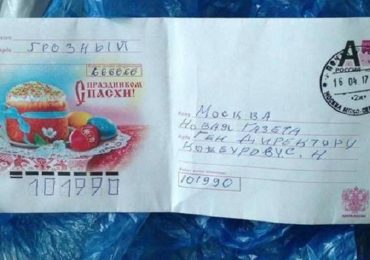 ГРОЗНЫЙ
666060
С ПРАЗДНИКОМ
ПАСХИ!
101990
А
РОССИЯ
16 04 17
МОСКВА
НОВАЯ ГАЗЕТА
ГЕН ДИРЕКТОРУ
КОЖЕУРОВУ С. Н
101990